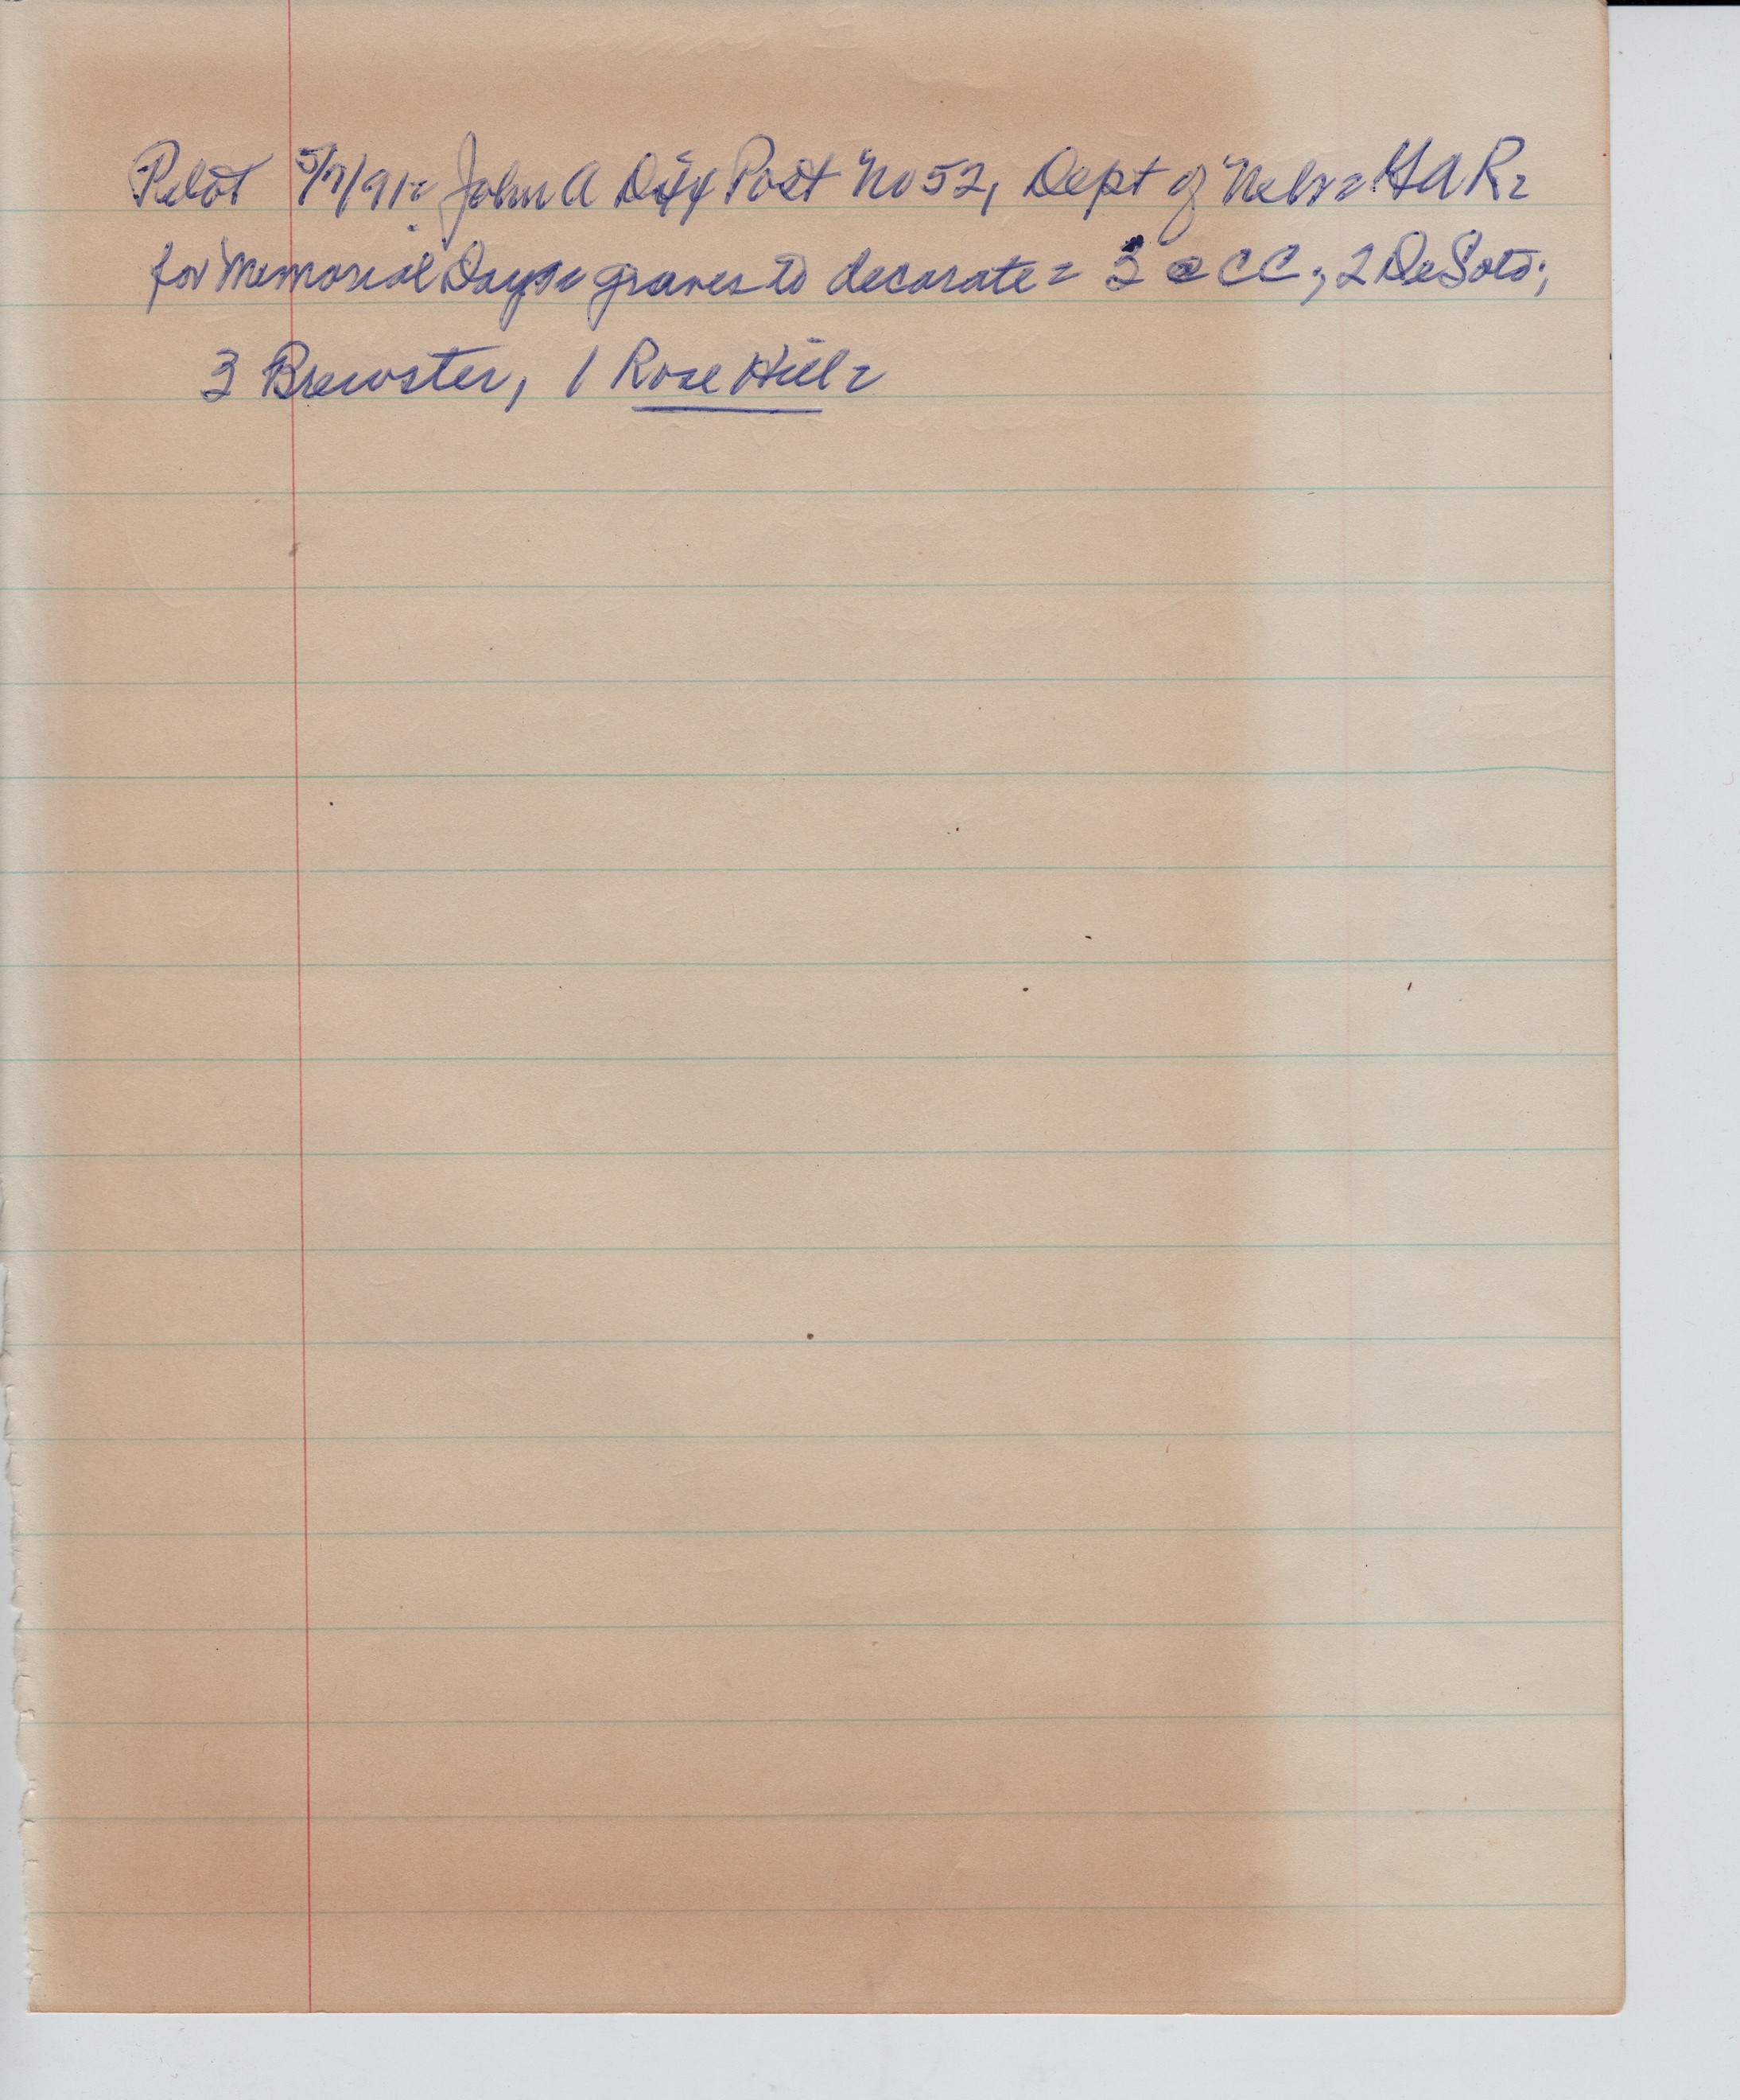 Pilot 5/7/91= John A Dix Post No 52, Dept of Nebr= GAR=
for Memorial Day= graves to decorate= 3 @ CC; 2 DeSoto;
3 Brewster, 1 Rose Hill=